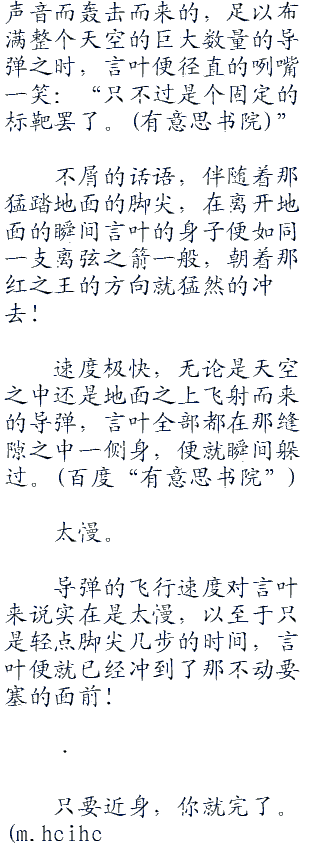 声音而轰击而来的，足以布
满整个天空的巨大数量的导
弹之时，言叶便径直的咧嘴
一笑：“只不过是个固定的
标靶罢了。(有意思书院)”
不屑的话语，伴随着那
猛踏地面的脚尖，在离开地
面的瞬间言叶的身子便如同
一支离弦之箭一般，朝着那
红之王的方向就猛然的冲
去！
速度极快，无论是天空
之中还是地面之上飞射而来
的导弹，言叶全部都在那缝
隙之中一侧身，便就瞬间躲
过。(百度“有意思书院”)
太漫。
导弹的飞行速度对言叶
来说实在是太漫，以至于只
是轻点脚尖几步的时间，言
叶便就已经冲到了那不动要
塞的面前！
.
只要近身，你就完了。
(m.hcihc